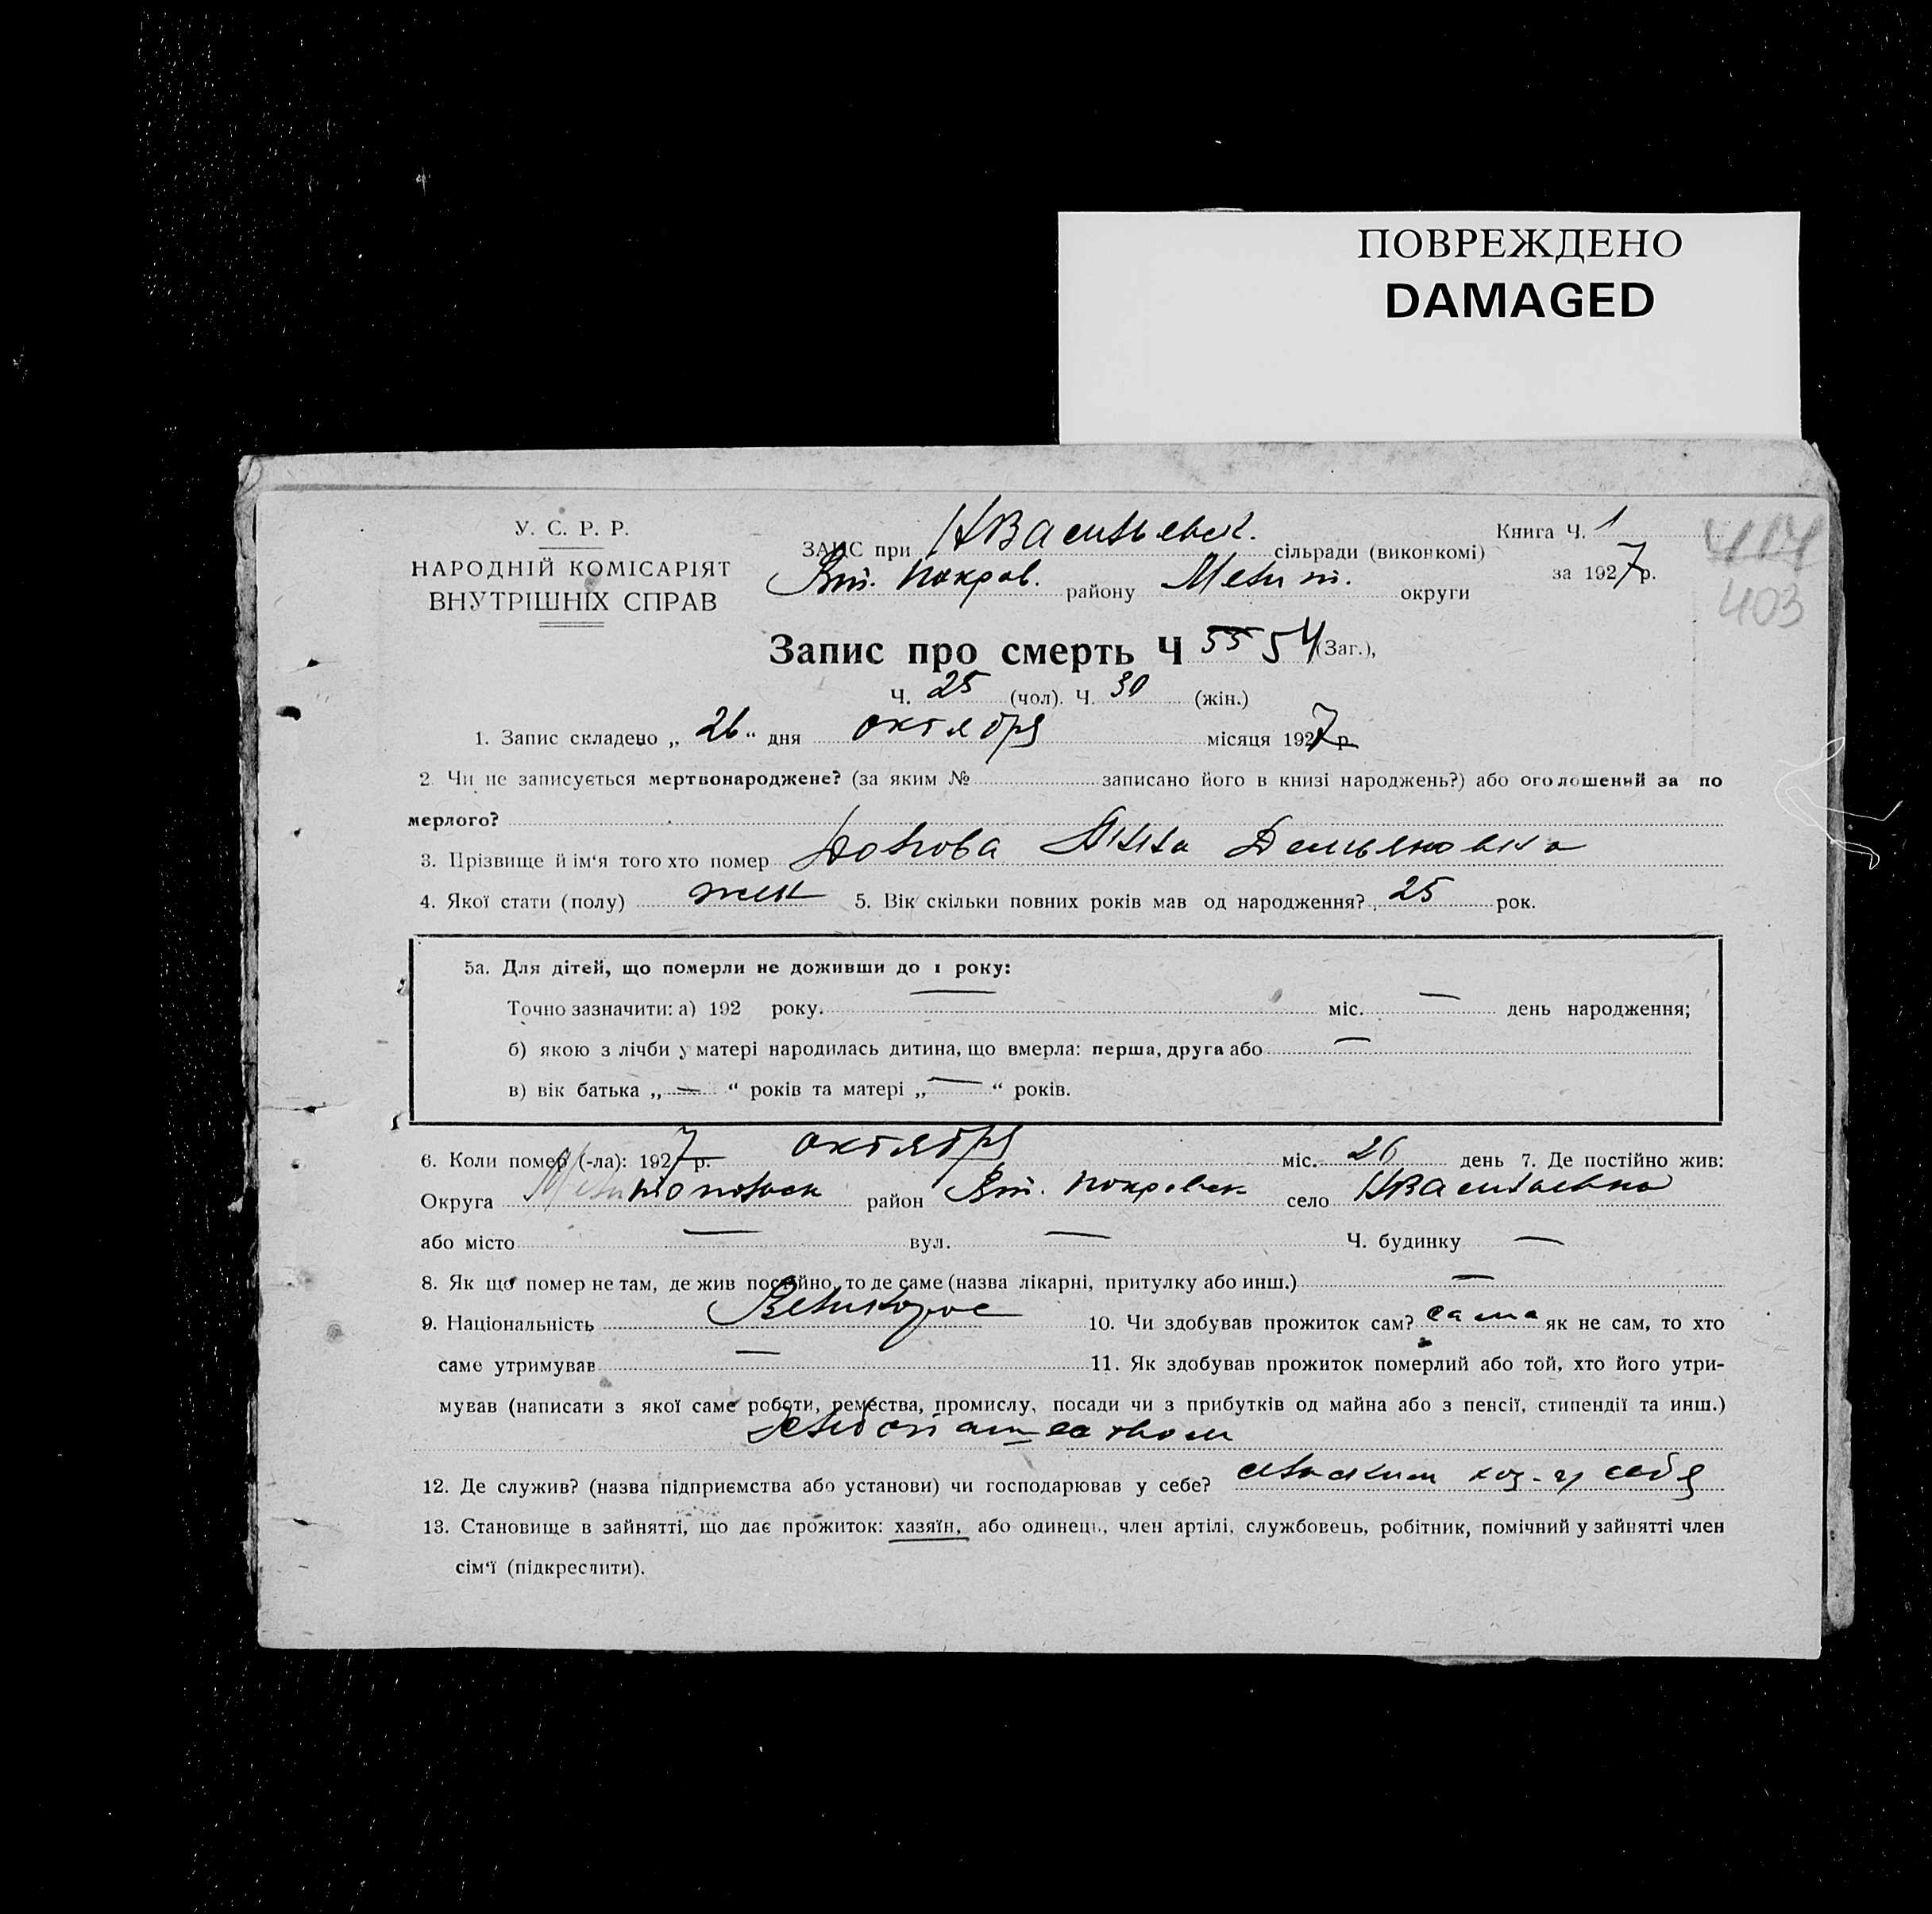 ПОВРЕЖДЕНО
DAMAGED
У. С. Р. Р.
НАРОДНІЙ КОМІСАРІЯТ
ВНУТРІШНІХ СПРАВ
ЗАГС при НВасильевск. сільради (виконкомі)
Вт. Покров. району Мелит. округи
Книга Ч. 1
за 1927 р.
414
403
Запис про смерть Ч 55 54 (Заг.),
Ч. 25 (чол). Ч. 30 (жін.)
1. Запис складено „ 26 “ дня октября місяця 1927 р.
2. Чи не записується мертвонароджене? (за яким № записано його в книзі народжень?) або оголошений за по
мерлого?
3. Прізвище й ім‘я того хто помер Анна Демьяновна
4. Якої стати (полу) жен 5. Вік скільки повних років мав од народження? 25 рок.
5а. Для дітей, що померли не доживши до 1 року:
Точно зазначити: а) 192 року. — міс. — день народження;
б) якою з лічби у матері народилась дитина, що вмерла: перша, друга або —
в) вік батька „ — “ років та матері „ — “ років.
6. Коли помер (-ла): 1927 р. октября міс. 26 день 7. Де постійно жив:
Округа Мелитопольск район Вт. Покровск село НВасильевка
або місто — вул. — Ч. будинку —
8. Як що помер не там, де жив постійно, то де саме (назва лікарні, притулку або инш.) —
9. Національність Великорос 10. Чи здобував прожиток сам? сама як не сам, то хто
саме утримував — 11. Як здобував прожиток померлий або той, хто його утри-
мував (написати з якої саме роботи, ремества, промислу, посади чи з прибутків од майна або з пенсії, стипендії та инш.)
12. Де служив? (назва підприємства або установи) чи господарював у себе? сельским хоз. у себя
13. Становище в зайнятті, що дає прожиток: хазяїн, або одинець, член артілі, службовець, робітник, помічний у зайнятті член
сім‘ї (підкреслити).